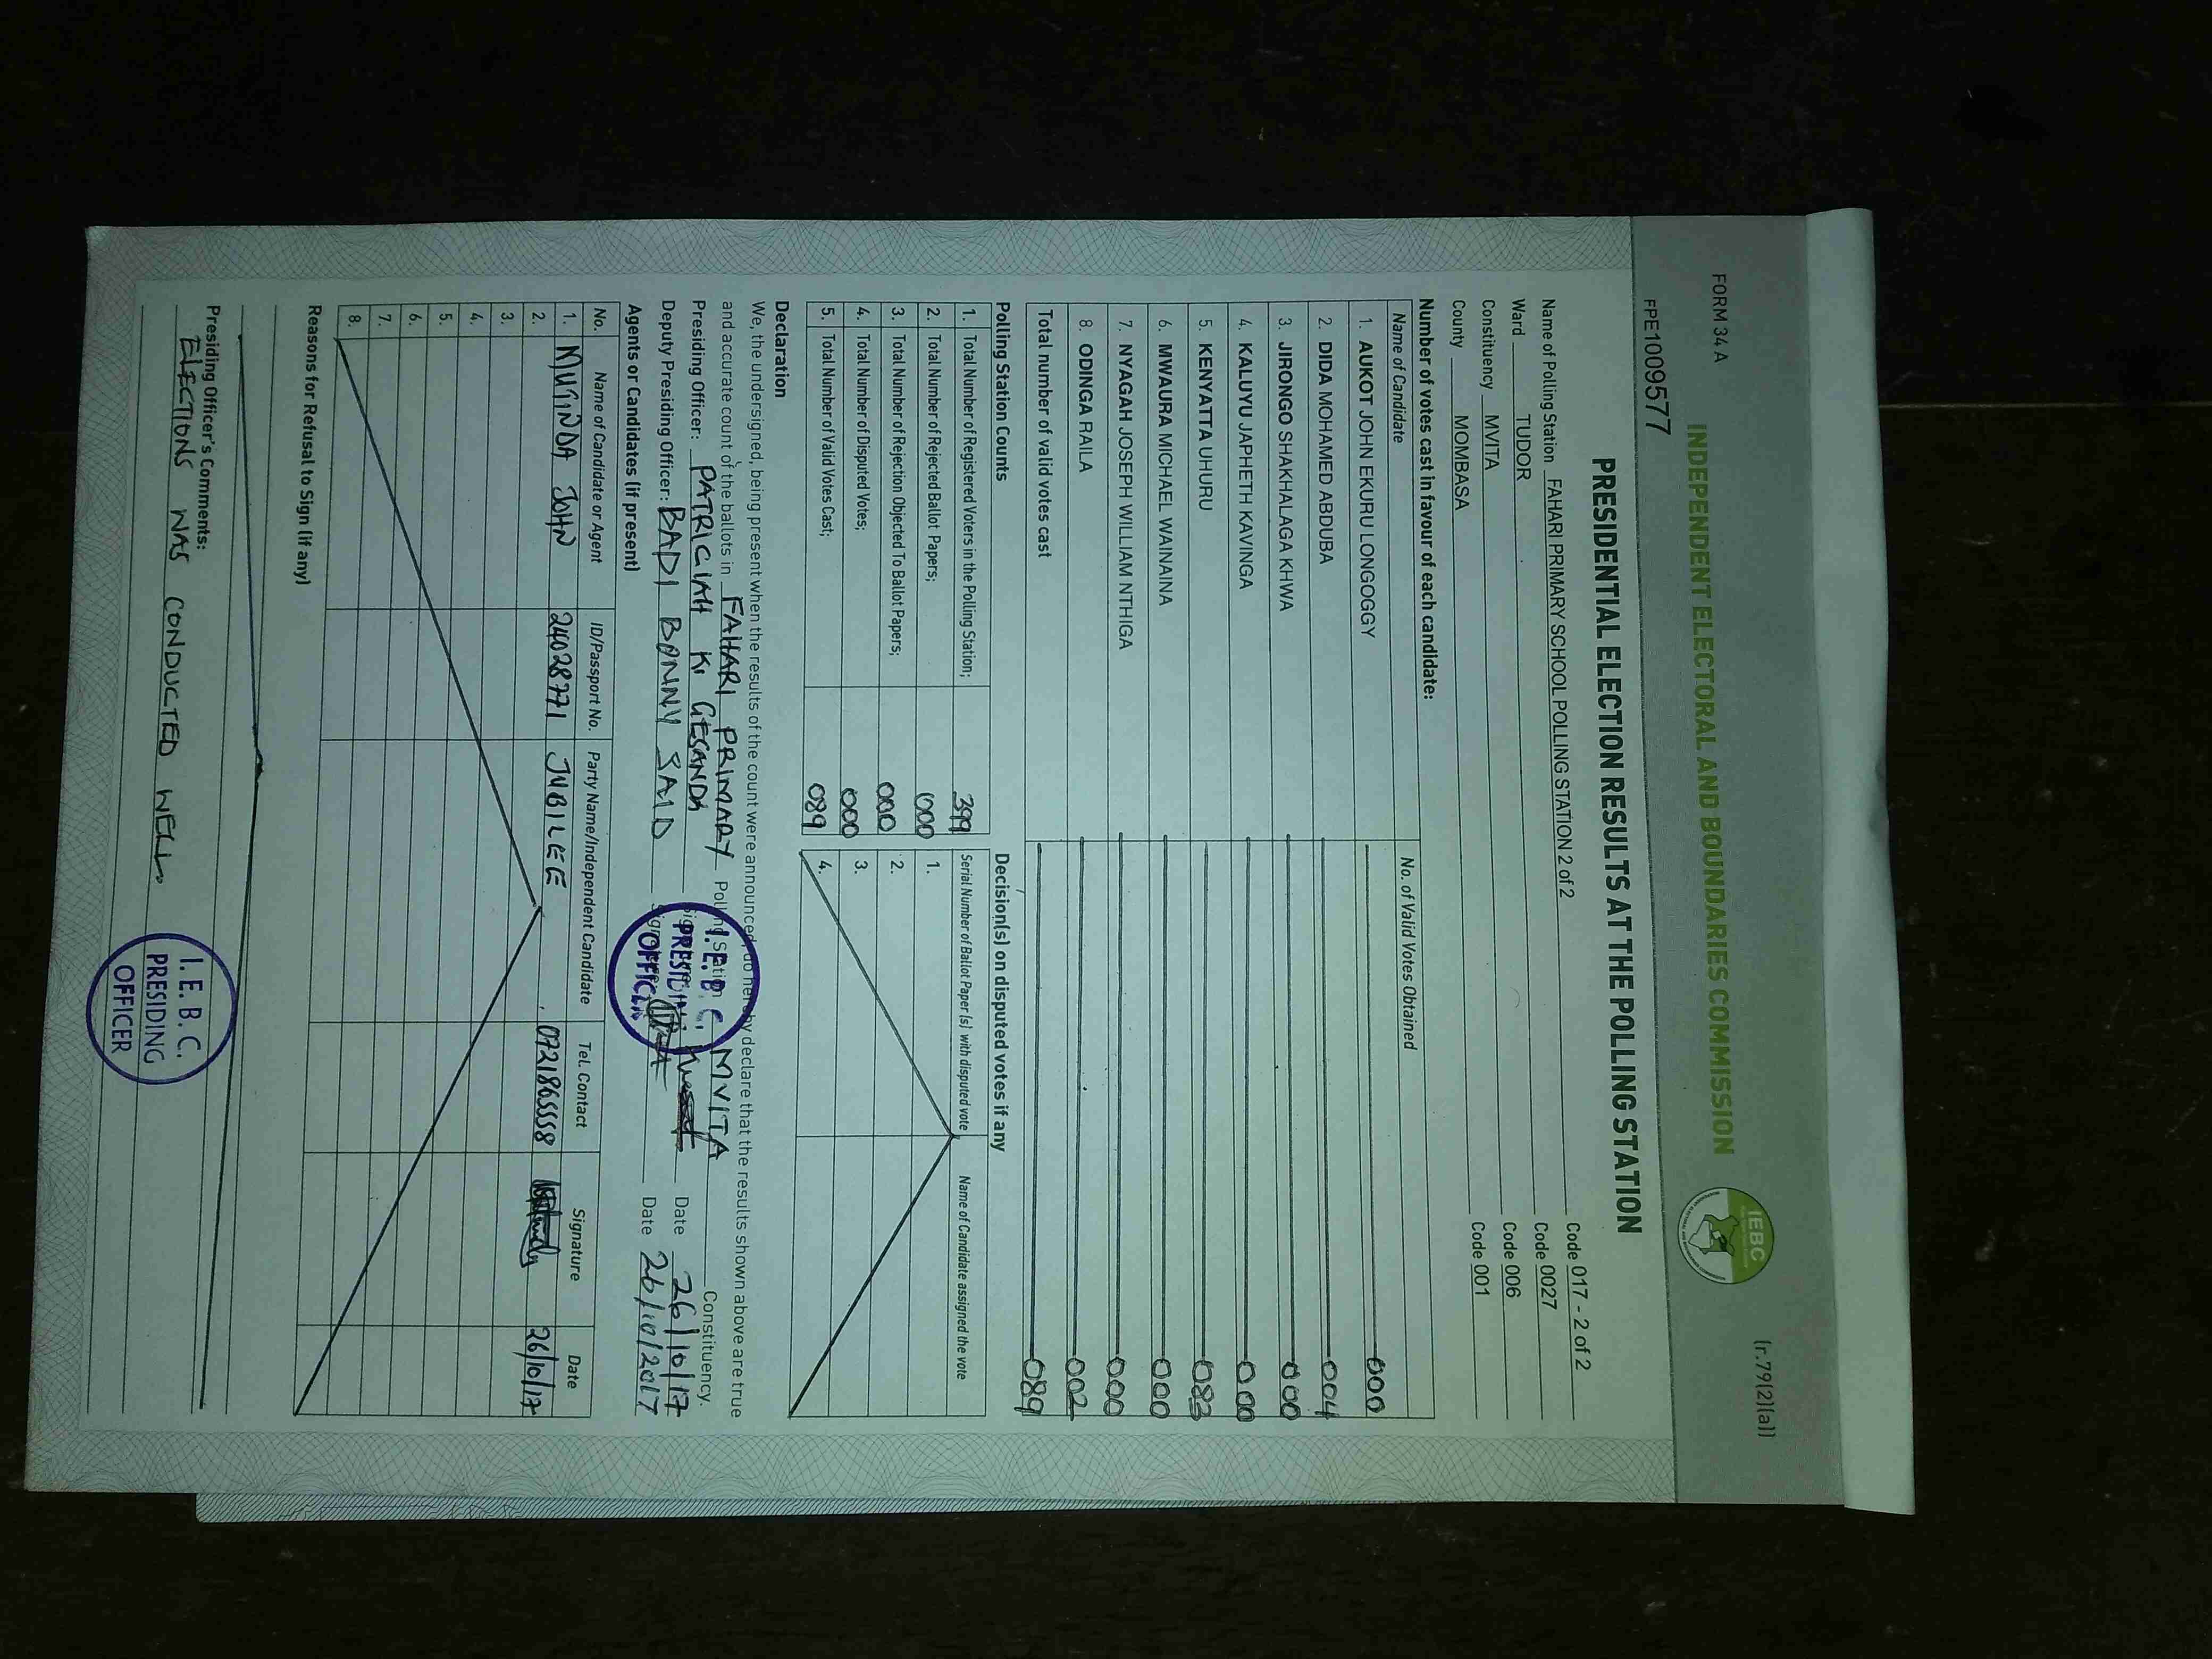 FORM 34 A
(r.79(2)(a))
INDEPENDENT ELECTORAL AND BOUNDARIES COMMISSION
IEBC
FPE1009577
PRESIDENTIAL ELECTION RESULTS AT THE POLLING STATION
Name of Polling Station FAHARI PRIMARY SCHOOL POLLING STATION 2 of 2 Code 017 - 2 of 2
Ward TUDOR Code 0027
Constituency MVITA Code 006
County MOMBASA Code 001
Number of votes cast in favour of each candidate:
Name of Candidate No. of Valid Votes Obtained
1. AUKOT JOHN EKURU LONGOGGY 000
2. DIDA MOHAMED ABDUBA 004
3. JIRONGO SHAKHALAGA KHWA 000
4. KALUYU JAPHETH KAVINGA 000
5. KENYATTA UHURU 083
6. MWAURA MICHAEL WAINAINA 000
7. NYAGAH JOSEPH WILLIAM NTHIGA 000
8. ODINGA RAILA 002
Total number of valid votes cast 089
Polling Station Counts
1. Total Number of Registered Voters in the Polling Station; 399
2. Total Number of Rejected Ballot Papers; 000
3 Total Number of Rejection Objected To Ballot Papers; 000
4. Total Number of Disputed Votes; 000
5. Total Number of Valid Votes Cast; 089
Decision(s) on disputed votes if any
Serial Number of Ballot Paper (s) with disputed vote Name of Candidate assigned the vote
1.
2.
3.
4.
Declaration
We, the undersigned, being present when the results of the count were announced, do hereby declare that the results shown above are true
and accurate count of the ballots in FAHARI PRIMARY Polling Station MVITA Constituency.
Presiding Officer: PATRICIAH K. GESANDA Date 26/10/17
Deputy Presiding Officer: BADI BONNY SAID Date 26/10/2017
I.E.B.C.
PRESIDING
OFFICER
Agents or Candidates (if present)
No. Name of Candidate or Agent ID/Passport No. Party Name/Independent Candidate Tel. Contact Signature Date
1. MUGINDA JOHN 24028771 JUBILEE 0721865558 26/10/17
2.
3.
4.
5.
6.
7.
8.
Reasons for Refusal to Sign (if any)
Presiding Officer's Comments:
ELECTIONS WAS CONDUCTED WELL.
I.E.B.C.
PRESIDING
OFFICER